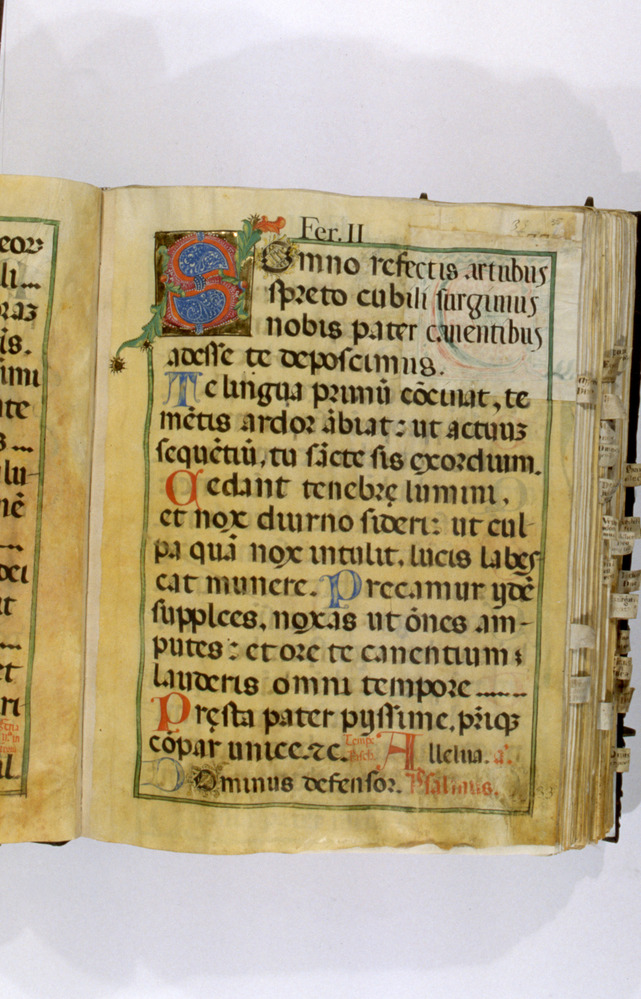 Fer. II
SOmno refectis artubus
spreto cubili surgimus
nobis pater canentibus
adesse te deposcimus.
Te lingua primū cōcinat, te
mētis ardor ābiat: ut actuuz
sequētiū, tu sācte sis exordium.
Cedant tenebrę lumini,
et nox diurno sideri: ut cul-
pa quā nox intulit, lucis labes
cat munere. Precamur ydē
supplices, noxas ut ōnes am-
putes: et ore te canentium;
lauderis omni tempore
Pręsta pater pyssime, pr̄iqꝫ
cōpar unice. ꝛc. Tempe Pasch. Alleluia. a.
DOminus defensor. Psalmus.
eor
li
raz
is.
imi
te
lu-
nē
dei
it
et
ri-
al